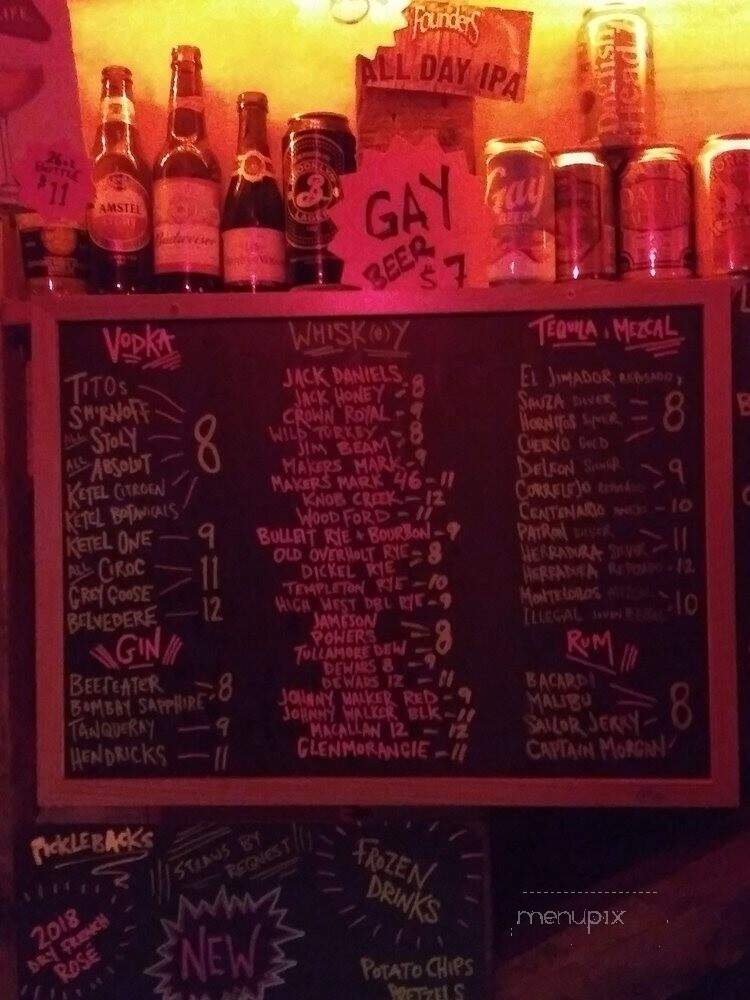 LIFE
Founders
ALL DAY IPA
Dogfish Head
BOTTLE
$11
AMSTEL
Budweiser
BROOKLYN
LAGER
B
GAY
BEER
$7
Gay
BEER
VODKA
TITOS
SMIRNOFF
ALL STOLY
ALL ABSOLUT
KETEL CITROEN
KETEL BOTANICALS
8
KETEL ONE - 9
ALL CIROC
GREY GOOSE
11
BELVEDERE - 12
GIN
BEEFEATER
BOMBAY SAPPHIRE
8
TANQUERAY - 9
HENDRICKS - 11
WHISK(E)Y
JACK DANIELS
JACK HONEY
8
CROWN ROYAL - 9
WILD TURKEY
JIM BEAM
8
MAKERS MARK - 9
MAKERS MARK 46 - 11
KNOB CREEK - 12
WOODFORD - 11
BULLEIT RYE + BOURBON - 9
OLD OVERHOLT RYE
DICKEL RYE
8
TEMPLETON RYE - 10
HIGH WEST DBL RYE - 9
JAMESON
POWERS
TULLAMORE DEW
8
DEWARS 8 - 9
DEWARS 12 - 11
JOHNNY WALKER RED - 9
JOHNNY WALKER BLK - 11
MACALLAN 12 - 12
GLENMORANGIE - 11
TEQUILA & MEZCAL
EL JIMADOR REPOSADO
SAUZA SILVER
HORNITOS SILVER
CUERVO GOLD
8
DELEON SILVER
CORRELEJO REPOSADO
9
CENTENARIO - 10
PATRON SILVER
HERRADURA SILVER
11
HERRADURA REPOSADO - 12
MONTELOBOS
ILLEGAL
10
RUM
BACARDI
MALIBU
SAILOR JERRY
CAPTAIN MORGAN
8
PICKLEBACKS
STRAWS BY
REQUEST
FROZEN
DRINKS
2018
DRY FRENCH
ROSÉ
NEW
POTATO CHIPS
PRETZELS
menupix